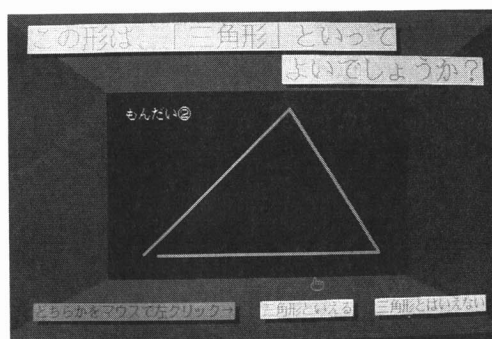 この形は、「三角形」といって
よいでしょうか?
もんだい②
どちらかをマウスで左クリック→
三角形といえる
三角形とはいえない